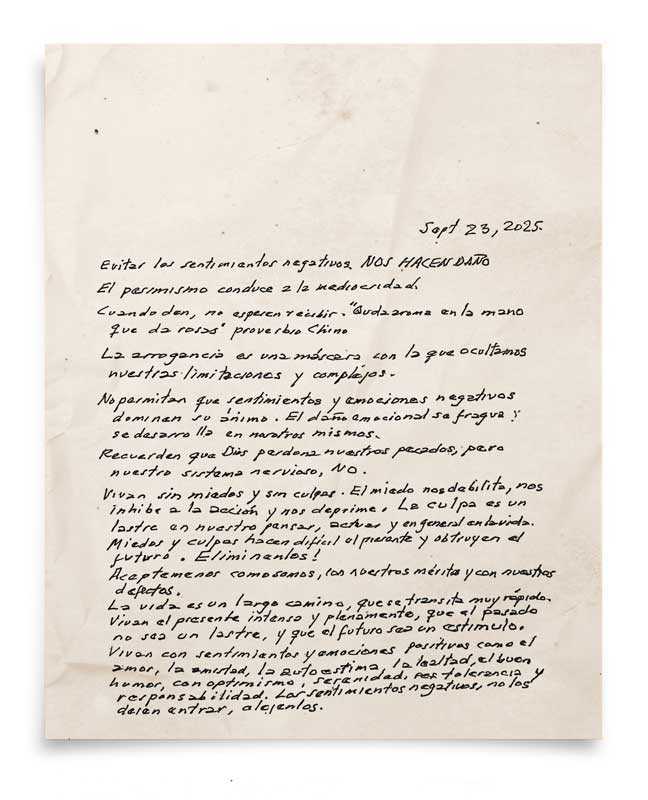 Sept 23, 2025.
Evitar los sentimientos negativos NOS HACEN DAÑO
El pesimismo conduce a la mediocridad.
Cuando den, no esperen recibir. "Queda aroma en la mano
que da rosas" proverbio Chino
La arrogancia es una máscara con la que ocultamos
nuestras limitaciones y complejos.
No permitan que sentimientos y emociones negativos
dominen su ánimo. El daño emocional se fragua y
se desarrolla en nosotros mismos.
Recuerden que Dios perdona nuestros pecados, pero
nuestro sistema nervioso, NO.
Vivan sin miedos y sin culpas. El miedo nos debilita, nos
inhibe a la acción y nos deprime. La culpa es un
lastre en nuestro pensar, actuar y en general en la vida.
Miedos y culpas hacen difícil el presente y obstruyen el
futuro. Elimínenlos!
Aceptemonos como somos, con nuestros méritos y con nuestros
defectos.
La vida es un largo camino, que se transita muy rápido.
Vivan el presente intensa y plenamente, que el pasado
no sea un lastre, y que el futuro sea un estímulo.
Vivan con sentimientos y emociones positivas como el
amor, la amistad, la autoestima, la lealtad, el buen
humor, con optimismo, serenidad, tolerancia y
responsabilidad. Los sentimientos negativos, no los
dejen entrar, aléjenlos.